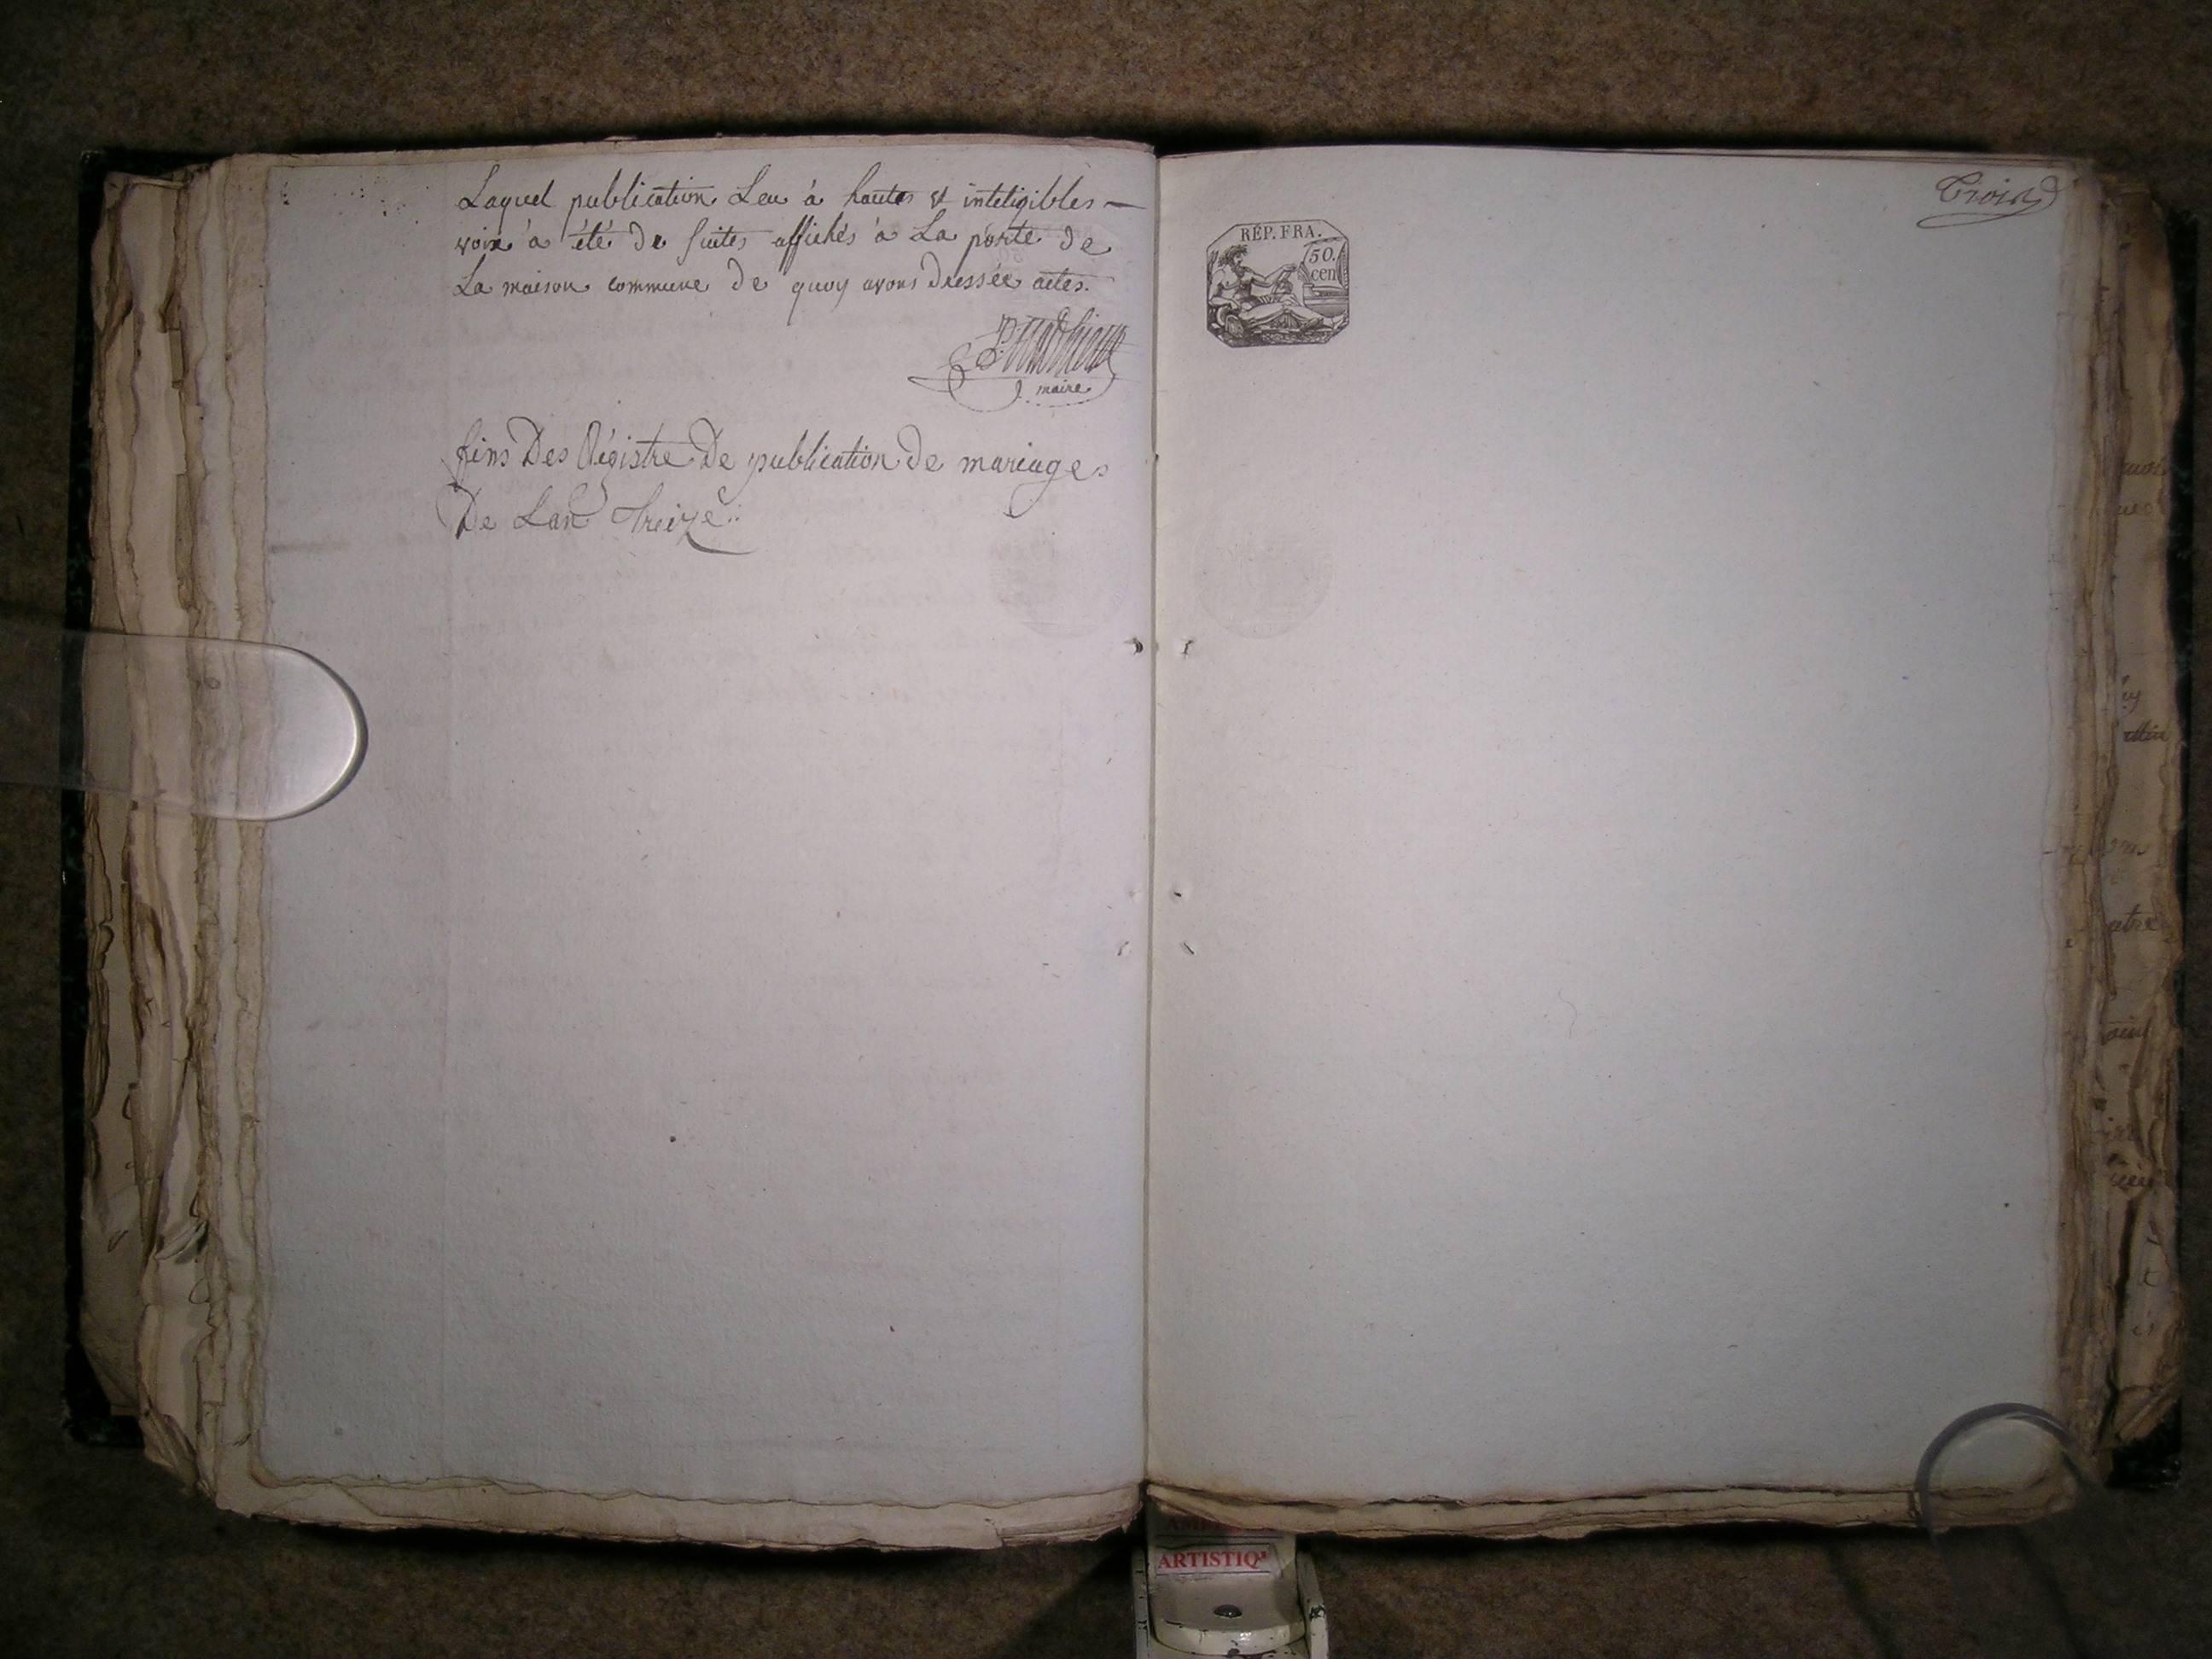 Laquel publication Leu à hautes et inteligibles —
voix à été de suites affichés à La porte de
La maison commune de quoy avons dressée actes.
maire
fins Des Régistre De publication de mariages
De Lan Treize
Trois
RÉP. FRA.
50.
cen
ARTISTIQ